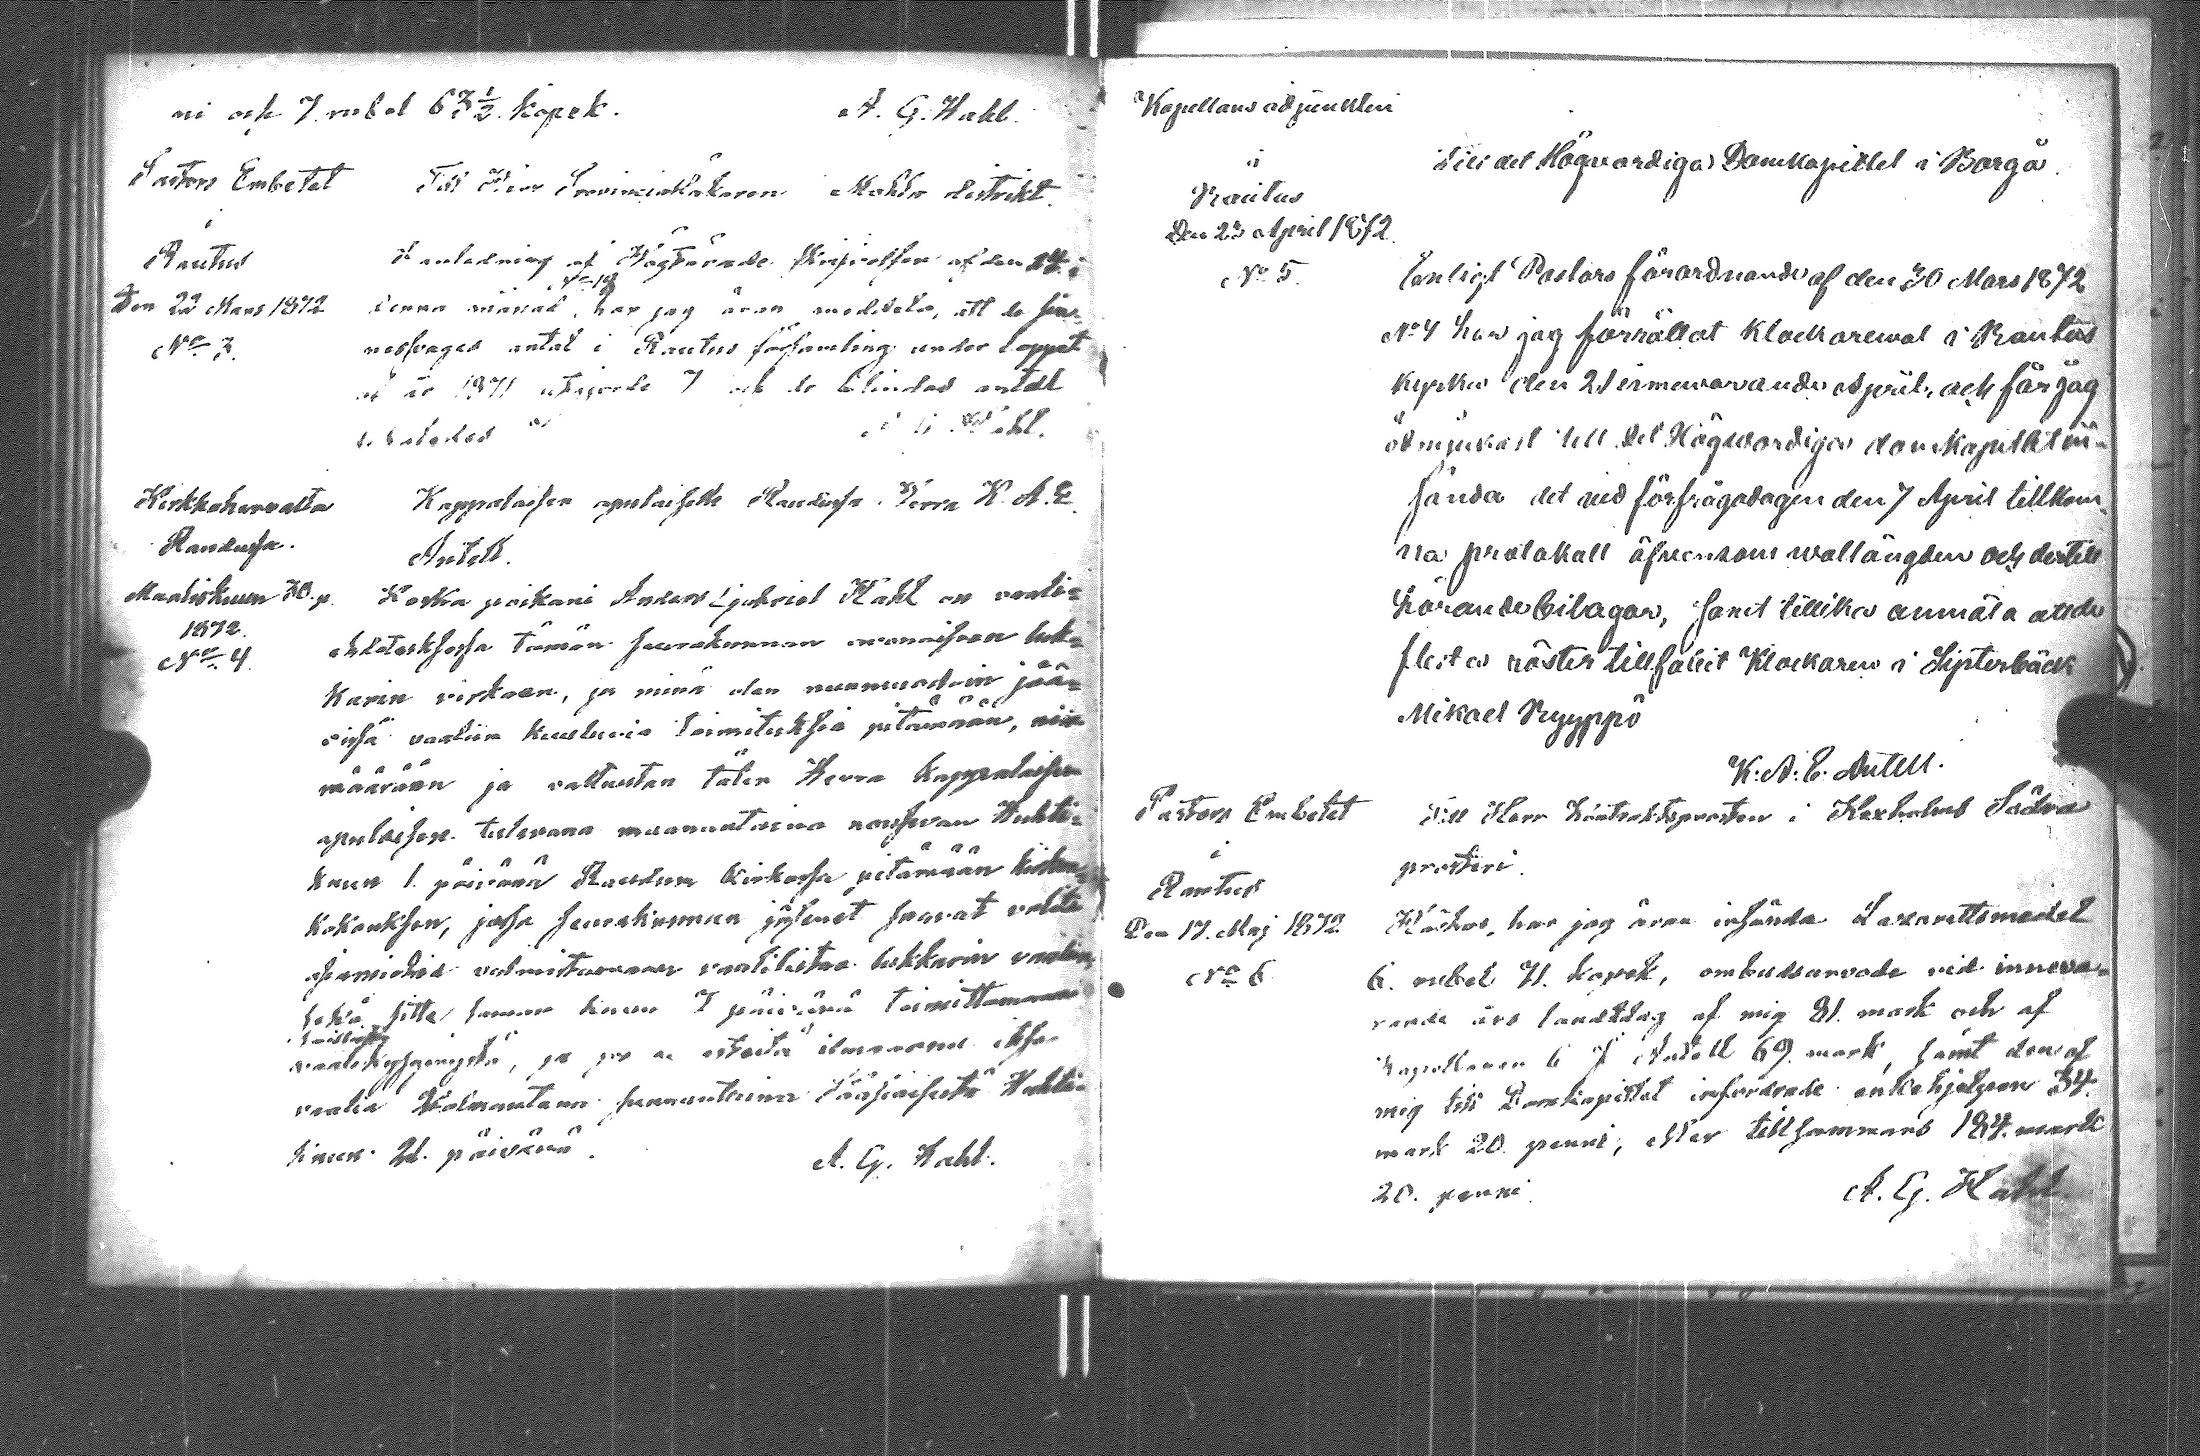 ni och 7. rubel 63½. kopek.
A. G. Hahl.
Pastors Embetet
i
Rautus
Den 22 Mars 1872
No 3.
Till Herr Provincialläkaren i Mohla distrikt.
I anledning af Högtärade skrifvelsen af den 14. i
No 18
denna månad, har jag äran meddela, att de sin-
nessvages antal i Rautus församling under loppet
af år 1871 utgjorde 7 och de blindas antal
A. G. Hahl.
Kirkkoherralta
Raudussa.
Maaliskuun 30. p.
1872.
No 4.
Kappalaisen apulaiselle Raudussa. Herra K. A. E.
Antell.
Koska poikani Anders Gabriel Hahl on vaali-
ehdotuksessa tämän seurakunnan avonaiseen luk-
karin virkaan, ja minä olen muumuodoin jää-
vissä vaaliin kuuluvia toimituksia pitämään, niin
määrään ja valtuutan tälen Herra kappalaisen
apulaisen tulevana maanantaina naissevan Huhti-
kuun 1. päivänä Raudun kirkossa pitämään
kokouksen, jossa seurakunnan jäsenet saavat valita
asiamiehiä valmistamaan vaalilistaa lukkarin vaaliin
sekä sitte saman kuun 7 päivänä toimittamaan
vaalikysymystä, ja jos ei esteitä ilmaannu itse
vaalia kolmantana sunnuntaina Pääsiäisestä Huhti-
kuun 21. päivänä.
A. G. Hahl.
Kapellans adjunkten
i
Rautus
Den 23 April 1872.
No 5.
Till det Högvördiga Domkapitlet i Borgå.
Enligt Pastors förordnande af den 30 Mars 1872
No 4 har jag förrättat klockareval i Rautus
kyrka den 21 innevarande April, och får jag
ödmjukast till det Högvördiga domkapitlet in-
sända det vid förfrågodagen den 7 April tillkom-
na protokoll äfvensom vallängden och dertill
hörande bilagor, samt tillika anmäla att de
flesta röster tillfallit Klockaren i Systerbäck
Mikael Pyyppö
K. A. E. Antell.
Pastors Embetet
i
Rautus
Den 17. Maj 1872
No 6
Till Herr Kontraktsprosten i Kexholms Södra
prosteri.
Härhos, har jag äran insända Lazarettsmedel
6. rubel 71. kopek, ombudsarvode vid inneva-
rande års landtdag af mig 81. mark och af
Kapellanen Antell 69. mark, samt den af
mig till Domkapitlet infordrade enkehjelpen 34.
mark 20. penni, eller tillsammans 184. mark
20. penni.
A. G. Hahl.